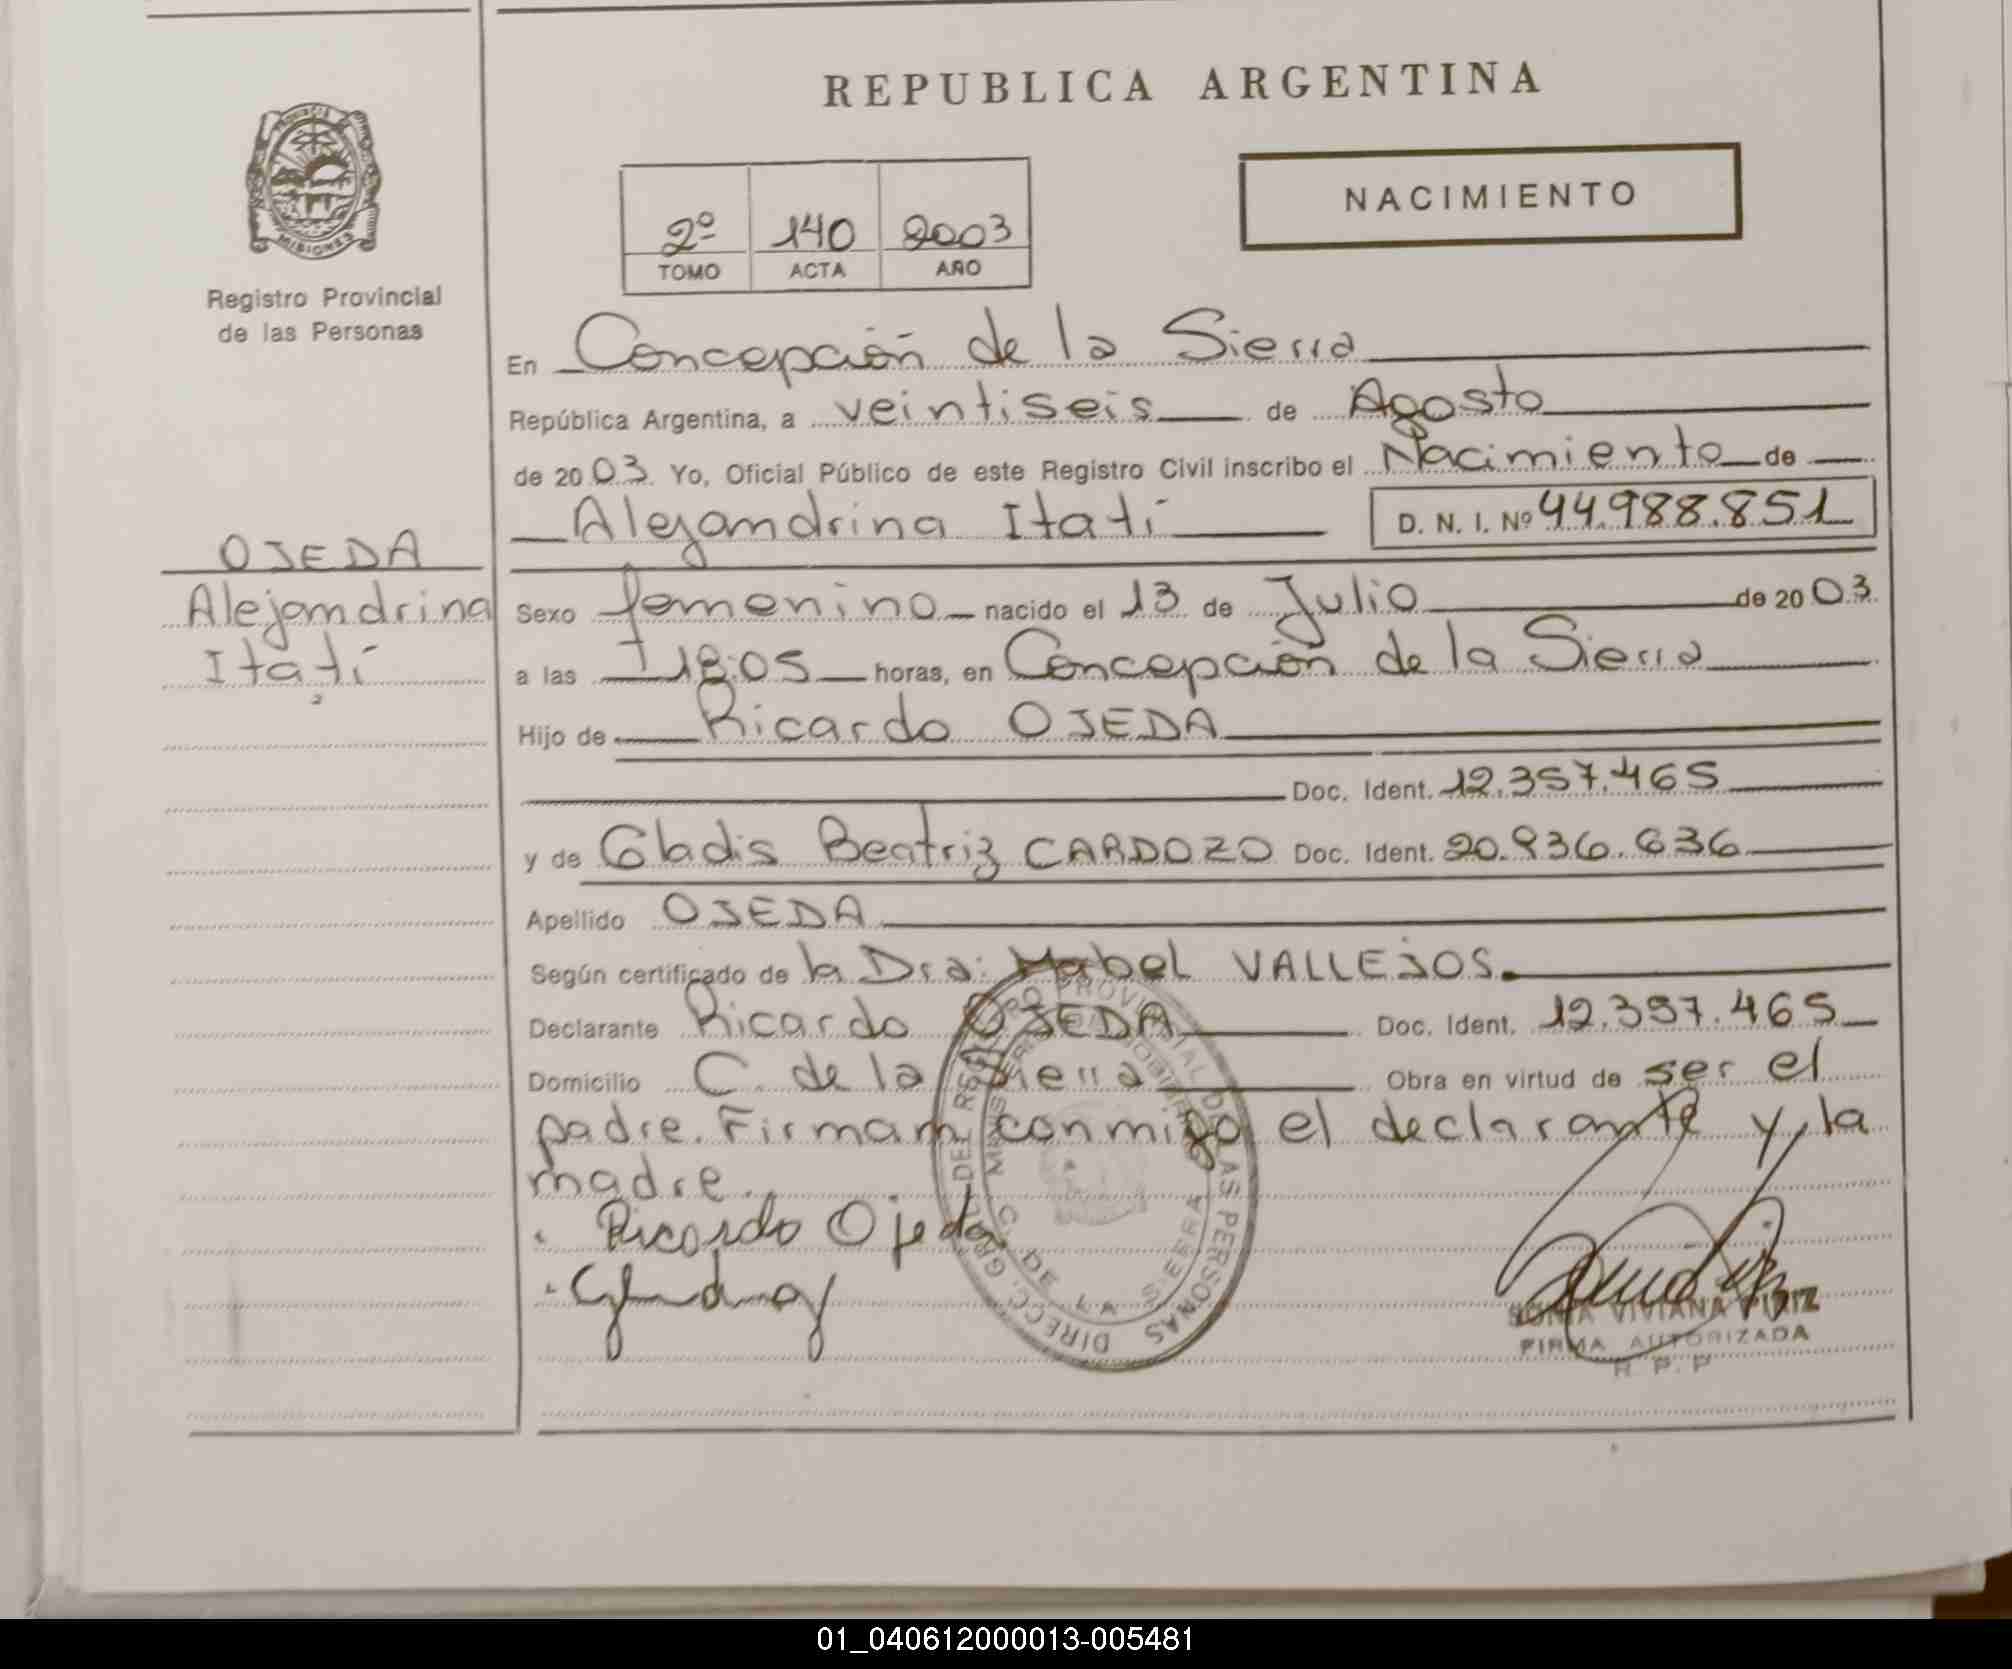 REPUBLICA ARGENTINA
PROVINCIA
MISIONES
Registro Provincial
de las Personas
2º 140 2003
TOMO ACTA AÑO
NACIMIENTO
En Concepción de la Sierra
República Argentina, a veintiseis de Agosto
de 2003. Yo, Oficial Público de este Registro Civil inscribo el Nacimiento de
Alejandrina Itatí D. N. I. Nº 44.988.851
OJEDA
Alejandrina
Itatí
Sexo femenino nacido el 13 de Julio de 2003.
a las 18:05 horas, en Concepción de la Sierra
Hijo de Ricardo OJEDA
Doc. Ident. 12.357.465
y de Gladis Beatriz CARDOZO Doc. Ident. 20.936.636
Apellido OJEDA
Según certificado de la Dra: Mabel VALLEJOS.
Declarante Ricardo OJEDA Doc. Ident. 12.357.465
Domicilio C. de la Sierra Obra en virtud de ser el
padre. Firman conmigo el declarante y la
madre.
Ricardo Ojeda
DIRECC. GRAL. DEL REGISTRO PROVINCIAL DE LAS PERSONAS
C. DE LA SIERRA
SONIA VIVIANA
FIRMA AUTORIZADA
R. P. P
01_040612000013-005481